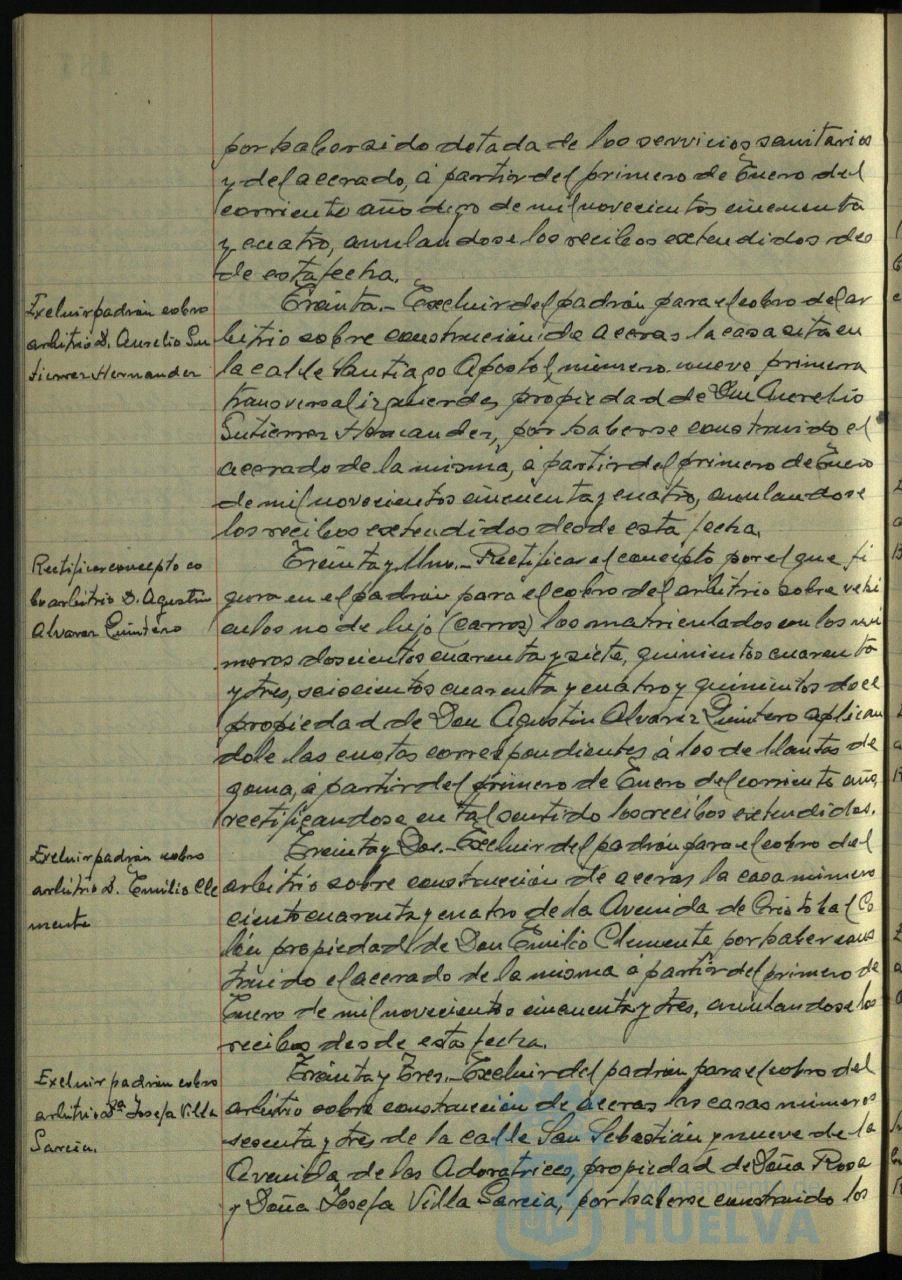 por haber sido dotada de los servicios sanitarios
y del acerado, á partir del primero de Enero del
corriente año digo de mil novecientos cincuenta
y cuatro, anulandose los recibos extendidos des
de esta fecha.
Excluir padrón cobro
arbitrio D. Aurelio Gu
tierrez Hernandez
Treinta.- Excluir del padrón para el cobro del ar
bitrio sobre construcción de aceras la casa sita en
la calle Santiago Apostol, número nueve, primera
transversal izquierda, propiedad de Don Aurelio
Gutierrez Hernandez, por haberse construido el
acerado de la misma, á partir del primero de Enero
de mil novecientos cincuenta y cuatro, anulandose
los recibos extendidos desde esta fecha.
Rectificar concepto co
bro arbitrio D. Agustin
Alvarez Quintero
Treinta y Uno.- Rectificar el concepto por el que fi
gura en el padrón para el cobro del arbitrio sobre vehi
culos no de lujo (carros) los matriculados con los nú
meros doscientos cuarenta y siete, quinientos cuarenta
y tres, seiscientos cuarenta y cuatro y quinientos doce
propiedad de Don Agustin Alvarez Quintero aplican
dole las cuotas correspondientes á los de llantas de
goma, á partir del primero de Enero del corriente año,
rectificandose en tal sentido los recibos extendidos.
Excluir padrón cobro
arbitrio D. Emilio Cle
mente
Treinta y Dos.- Excluir del padrón para el cobro del
arbitrio sobre construcción de aceras la casa número
ciento cuarenta y cuatro de la Avenida de Cristobal Co
lón propiedad de Don Emilio Clemente por haber cons
truido el acerado de la misma á partir del primero de
Enero de mil novecientos cincuenta y tres, anulandose los
recibos desde esta fecha.
Excluir padrón cobro
arbitrio Dª Josefa Villa
García.
Treinta y Tres.- Excluir del padrón para el cobro del
arbitrio sobre construcción de aceras las casas números
sesenta y tres de la calle San Sebastián y nueve de la
Avenida de las Adoratrices, propiedad de Doña Rosa
y Doña Josefa Villa García, por haberse construido los
Ayuntamiento de
HUELVA